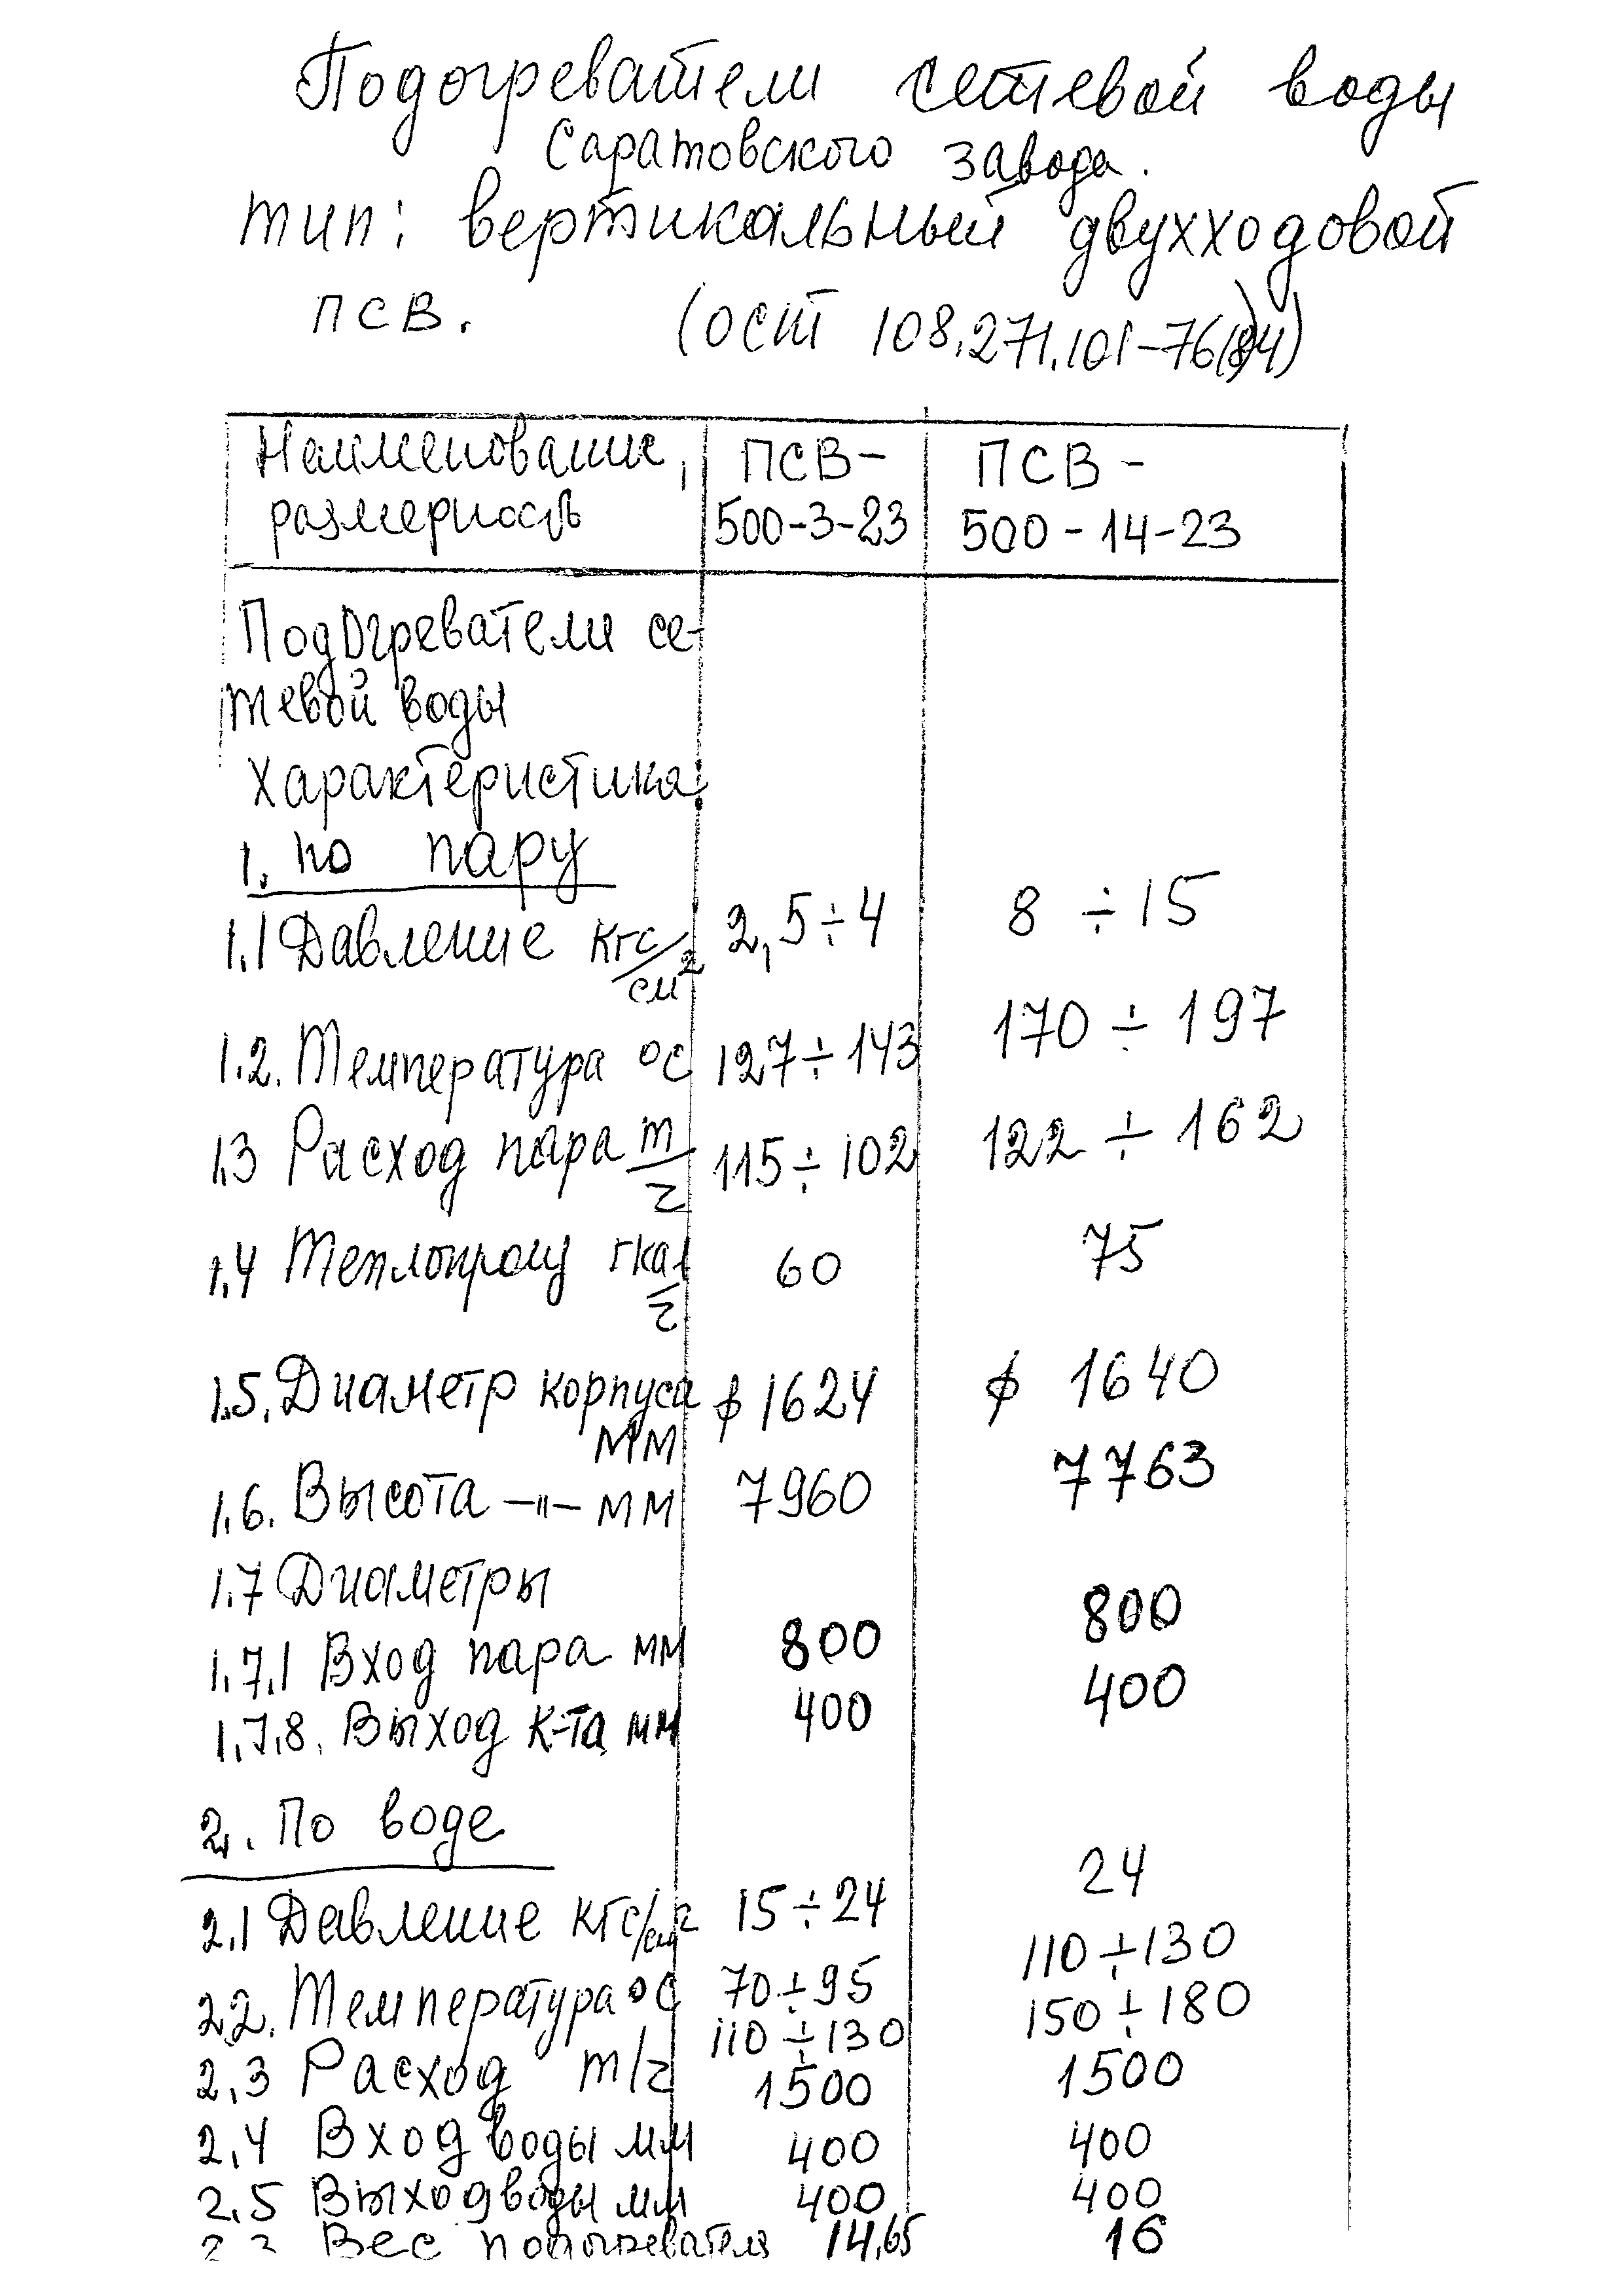 Подогреватели сетевой воды
Саратовского завода.
тип: вертикальный двухходовой
ПСВ. (ОСТ 108.271.101-76(84)
Наименование, ПСВ- ПСВ -
размерность 500-3-23 500 - 14-23
Подогреватели се-
тевой воды
Характеристика
1. по пару
1.1 Давление кгс/см2 2,5÷4 8 ÷ 15
1.2. Температура °С 127÷143 170 ÷ 197
1.3 Расход пара т/г 115÷102 122 ÷ 162
1.4 гкал/г 60 75
1.5. Диаметр корпуса ф 1624 ф 1640
мм
1.6. Высота -"- мм 7960 7763
1.7 Диаметры
1.7.1 Вход пара мм 800 800
1.7.8. Выход к-та мм 400 400
2. По воде
2.1 Давление кгс/см2 15÷24 24
2.2. Температура °С 70÷95 110÷130
110÷130 150÷180
2.3 Расход т/г 1500 1500
2.4 Вход воды мм 400 400
2.5 Выход воды мм 400 400
Вес подогревателя 14,65 16